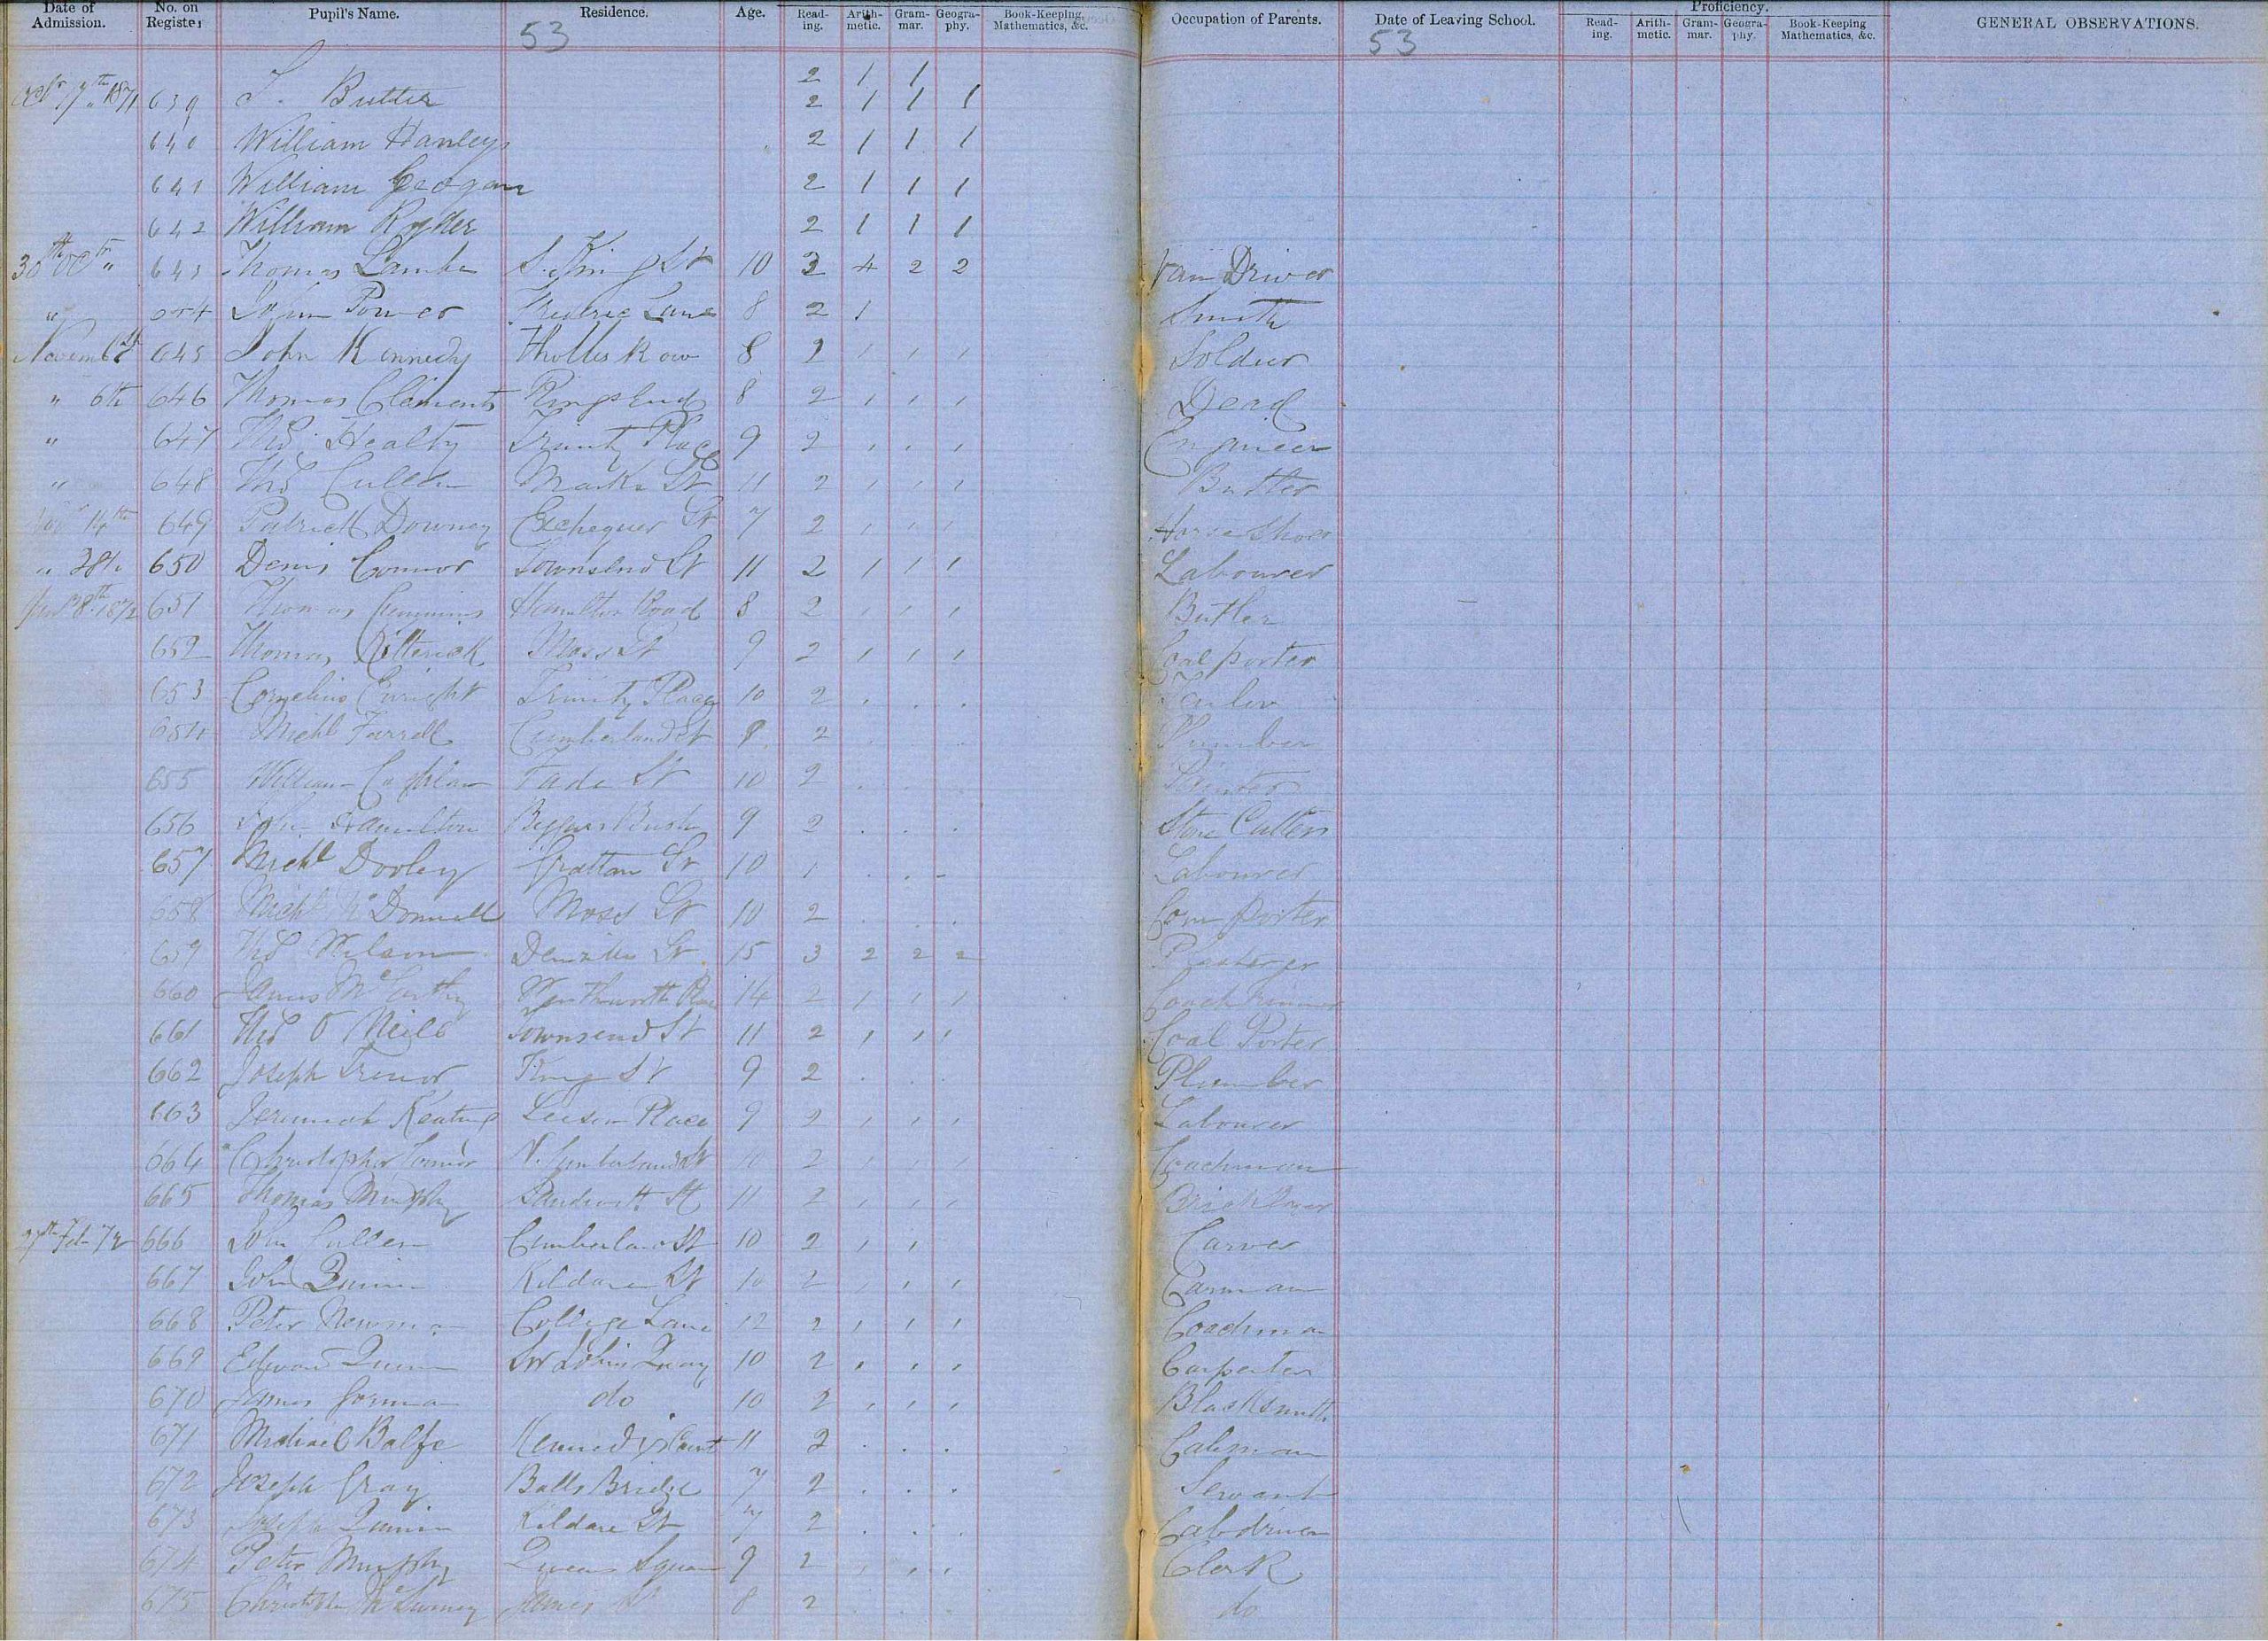 Date of Admission. No. on Register Pupil's Name. Residence. Age. Read-ing. Arith-metic. Gram-mar. Geogra-phy. Book-Keeping, Mathematics, &c. Occupation of Parents. Date of Leaving School. Proficiency. Read-ing. Arith-metic. Gram-mar. Geogra-phy. Book-Keeping Mathematics, &c. GENERAL OBSERVATIONS.
53 53
2 1 1
17th 1871 639 Butler 2 1 1 1
640 William Hanley 2 1 1 1
641 William Geogan 2 1 1 1
642 William Ryder 2 1 1 1
30th Octr " 643 Thomas Lambe S. King St 10 3 4 2 2 Van Driver
" John Power Frederic Lane 8 2 1 Smith
Novemb 645 John Kennedy Holles Row 8 2 1 1 1 Soldier
" 6th 646 Thomas Clements Ringsend 8 2 1 1 1 Dead
" 647 Thos Healty Trinity Place 9 2 1 1 1 Engineer
" 648 Thos Cullen Marks St 11 2 1 1 1 Butler
Novr 14th 649 Patrick Downey Exchequer St 7 2 1 1 1 Horse Shoer
" 28th 650 Denis Connor Townsend St 11 2 1 1 1 Labourer
8th 1872 651 Thomas Cummins Hamilton Road 8 2 1 1 1 Butler
652 Thomas Kitterick Moss St 9 2 1 1 1 Coal porter
653 Cornelius Enright Trinity Place 10 2 . . .
654 Michl Farrell Cumberland St 2 . . . Plumber
655 William Caphlan Fade St 10 2 . . . Painter
656 John Hamilton Beggars Bush 9 2 . . . Stone Cutter
657 Michl Dooley Grattan St 10 1 . . . Labourer
658 Michl McDonnell Moss St 10 2 . . . Corn porter
659 Thos Wilson Denzille St 15 3 2 2 2 Plasterer
660 James McCarthy Wentworth Place 14 2 1 1 1 Coach Trimmer
661 Thos O Neill Townsend St 11 2 1 1 1 Coal Porter
662 Joseph Trenor King St 9 2 . . . Plumber
663 Jeremiah Keating Leeson Place 9 2 1 1 1 Labourer
664 Christopher Connor N. Cumberland St 11 2 1 1 1 Coachman
665 Thomas Murphy Sandwith St 11 2 1 1 1 Bricklayer
27th Feb 72 666 John Cullen Cumberland St 10 2 1 1 Carver
667 John Quinn Kildare St 10 2 1 1 1 Carman
668 Peter Newman College Lane 12 2 1 1 1 Coachman
669 Edward Quinn Sir John's Quay 10 2 1 1 1 Carpenter
670 James Gorman do 10 2 1 1 1 Blacksmith
671 Michael Balfe Kennedys Court 11 2 . . . Cabman
672 Joseph Gray Balls Bridge 7 2 . . . Servant
673 Joseph Quinn Kildare St 7 2 . . . Cabdriver
674 Peter Murphy Queens Square 9 2 . . . Clerk
675 James St 8 2 . . . do